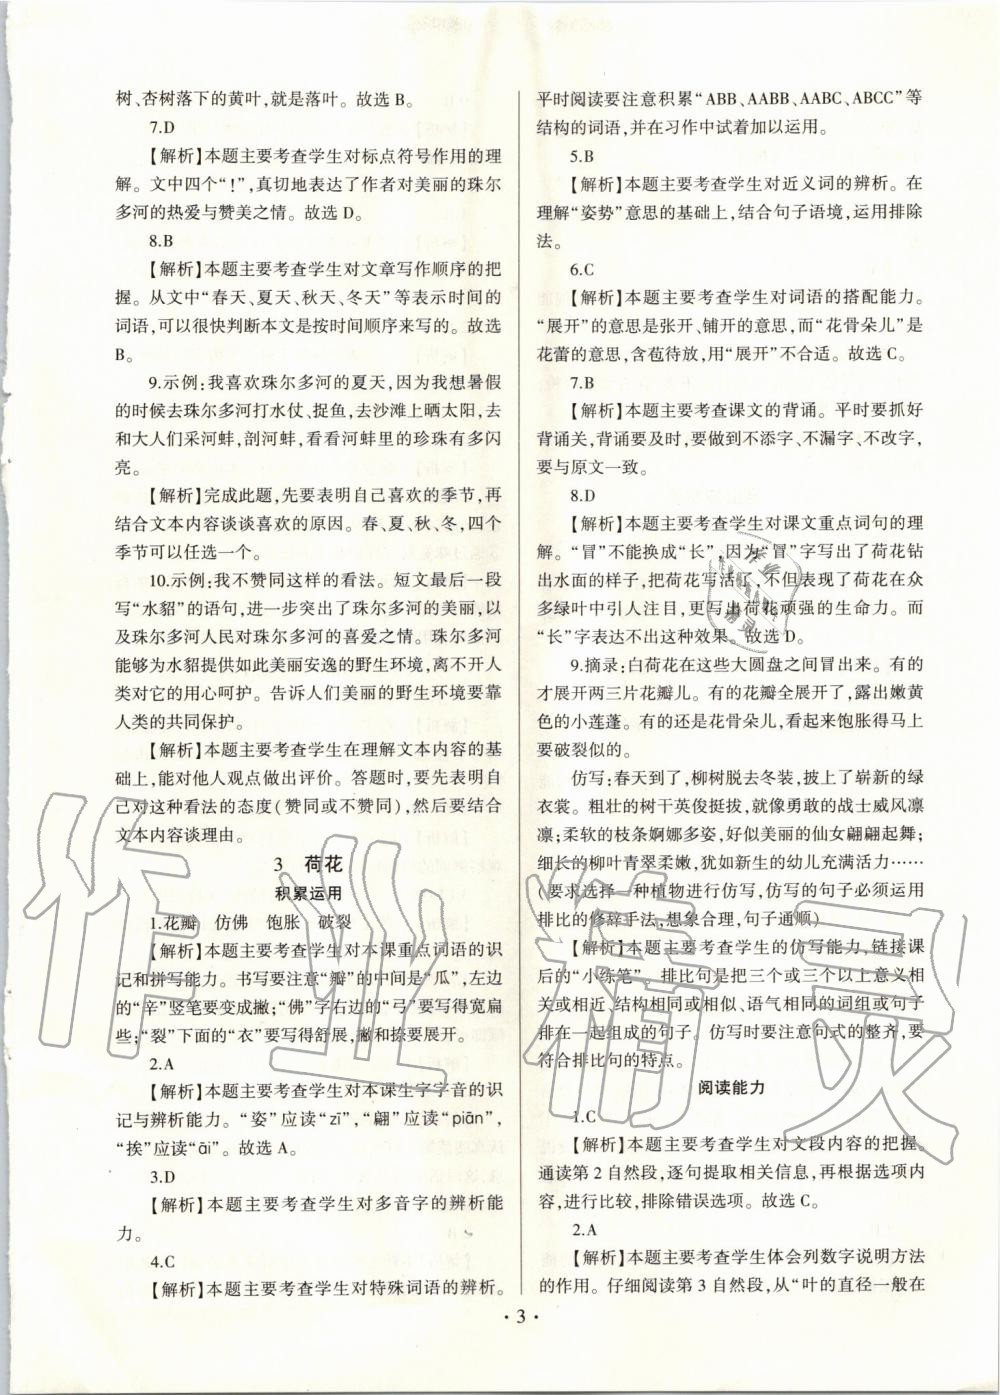 树、杏树落下的黄叶,就是落叶。故选 B。
7.D
【解析】本题主要考查学生对标点符号作用的理
解。文中四个“!”,真切地表达了作者对美丽的珠尔
多河的热爱与赞美之情。故选 D。
8.B
【解析】本题主要考查学生对文章写作顺序的把
握。从文中“春天、夏天、秋天、冬天”等表示时间的
词语,可以很快判断本文是按时间顺序来写的。故选
B。
9.示例:我喜欢珠尔多河的夏天,因为我想暑假
的时候去珠尔多河打水仗、捉鱼,去沙滩上晒太阳,去
和大人们采河蚌,剖河蚌,看看河蚌里的珍珠有多闪
亮。
【解析】完成此题,先要表明自己喜欢的季节,再
结合文本内容谈谈喜欢的原因。春、夏、秋、冬,四个
季节可以任选一个。
10.示例:我不赞同这样的看法。短文最后一段
写“水貂”的语句,进一步突出了珠尔多河的美丽,以
及珠尔多河人民对珠尔多河的喜爱之情。珠尔多河
能够为水貂提供如此美丽安逸的野生环境,离不开人
类对它的用心呵护。告诉人们美丽的野生环境要靠
人类的共同保护。
【解析】本题主要考查学生在理解文本内容的基
础上,能对他人观点做出评价。答题时,要先表明自
己对这种看法的态度(赞同或不赞同),然后要结合
文本内容谈理由。
3 荷花
积累运用
1.花瓣 仿佛 饱胀 破裂
【解析】本题主要考查学生对本课重点词语的识
记和拼写能力。书写要注意“瓣”的中间是“瓜”,左边
的“辛”竖笔要变成撇;“佛”字右边的“弓”要写得宽扁
些;“裂”下面的“衣”要写得舒展,撇和捺要展开。
2.A
【解析】本题主要考查学生对本课生字字音的识
记与辨析能力。“姿”应读“zī”,“翩”应读“piān”,
“挨”应读“āi”。故选 A。
3.D
【解析】本题主要考查学生对多音字的辨析能
力。
4.C
【解析】本题主要考查学生对特殊词语的辨析。
平时阅读要注意积累“ABB、AABB、AABC、ABCC”等
结构的词语,并在习作中试着加以运用。
5.B
【解析】本题主要考查学生对近义词的辨析。在
理解“姿势”意思的基础上,结合句子语境,运用排除
法。
6.C
【解析】本题主要考查学生对词语的搭配能力。
“展开”的意思是张开、铺开的意思,而“花骨朵儿”是
花蕾的意思,含苞待放,用“展开”不合适。故选 C。
7.B
【解析】本题主要考查课文的背诵。平时要抓好
背诵关,背诵要及时,要做到不添字、不漏字、不改字,
要与原文一致。
8.D
【解析】本题主要考查学生对课文重点词句的理
解。“冒”不能换成“长”,因为“冒”字写出了荷花钻
出水面的样子,把荷花写活了,不但表现了荷花在众
多绿叶中引人注目,更写出荷花顽强的生命力。而
“长”字表达不出这种效果。故选 D。
9.摘录:白荷花在这些大圆盘之间冒出来。有的
才展开两三片花瓣儿。有的花瓣全展开了,露出嫩黄
色的小莲蓬。有的还是花骨朵儿,看起来饱胀得马上
要破裂似的。
仿写:春天到了,柳树脱去冬装,披上了崭新的绿
衣裳。粗壮的树干英俊挺拔,就像勇敢的战士威风凛
凛;柔软的枝条婀娜多姿,好似美丽的仙女翩翩起舞;
细长的柳叶青翠柔嫩,犹如新生的幼儿充满活力……
(要求选择一种植物进行仿写,仿写的句子必须运用
排比的修辞手法,想象合理,句子通顺)
【解析】本题主要考查学生的仿写能力,链接课
后的“小练笔”。排比句是把三个或三个以上意义相
关或相近、结构相同或相似、语气相同的词组或句子
排在一起组成的句子。仿写时要注意句式的整齐,要
符合排比句的特点。
阅读能力
1.C
【解析】本题主要考查学生对文段内容的把握。
通读第 2 自然段,逐句提取相关信息,再根据选项内
容,进行比较,排除错误选项。故选 C。
2.A
【解析】本题主要考查学生体会列数字说明方法
的作用。仔细阅读第 3 自然段,从“叶的直径一般在
· 3 ·
作业精灵